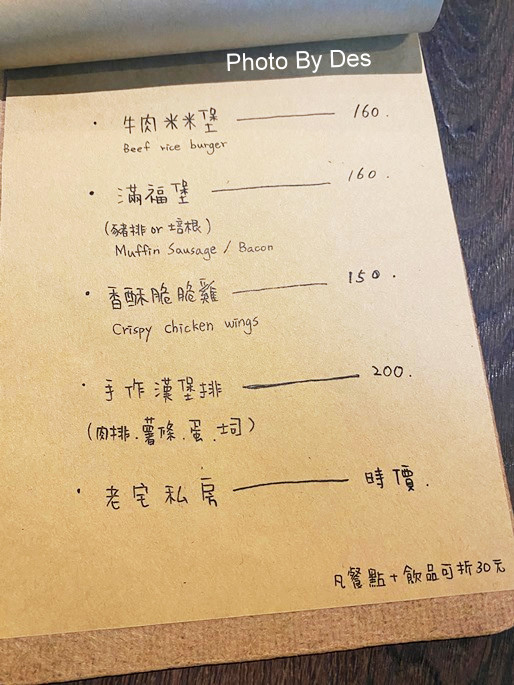 Photo By Des
· 牛肉米米堡 —— 160.
Beef rice burger
· 滿福堡 —— 160.
(豬排 or 培根)
Muffin Sausage / Bacon
· 香酥脆脆雞 —— 150.
Crispy chicken wings
· 手作漢堡排 —— 200.
(肉排.薯條.蛋.土司)
· 老宅私房 —— 時價.
凡餐點+飲品可折30元